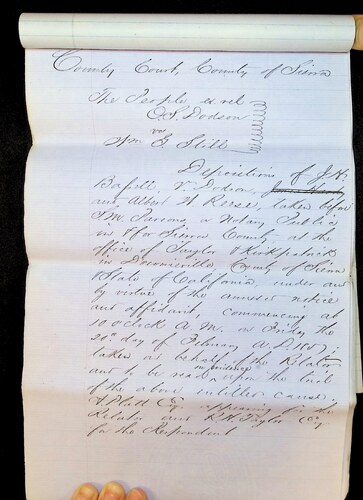 County Court, County of Sierra
The People ex rel
O. S. Dodson
vs
Wm G Still
Depositions of J. H.
Bassett, V. Dodson,
and Albert H Reese, taken before
J. M. Parsons, a Notary Public
in & for Sierra County at the
office of Taylor & Kirkpatrick
in Downieville, County of Sierra
State of California, under and
by virtue of the annexed notice
and affidavit, commencing at
10 oclock A. M. on Friday the
day of February A. D.
taken on behalf of the Relator
and to be read in evidence upon the trial
of the above intitled cause,
Platt Esq. appearing for the
Relator and R. H. Taylor Esq
for the Respondent